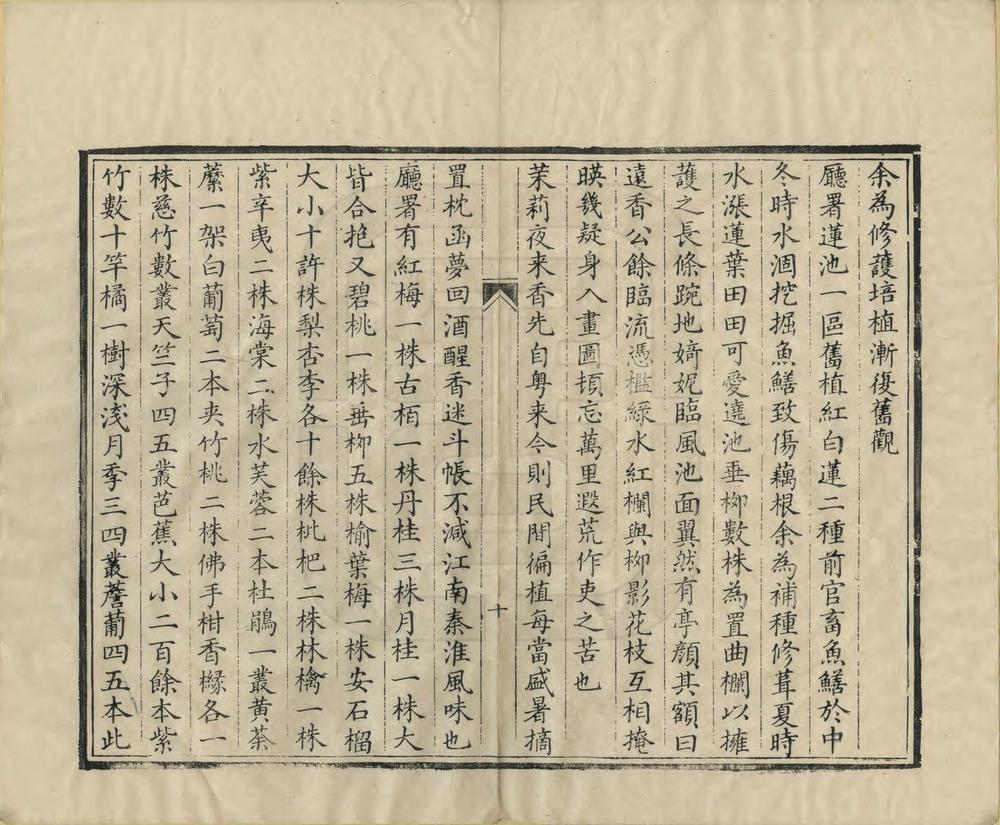 余為修護培植漸復舊觀
廳署蓮池一區舊植紅白蓮二種前官畜魚鱔於中
冬時水涸挖掘魚鱔致傷藕根余為補種修葺夏時
水漲蓮葉田田可愛遶池垂栁數株為置曲欄以擁
護之長條踠地婍妮臨風池面翼然有亭顔其額曰
遠香公餘臨流憑檻綠水紅欄與栁影花枝互相掩
暎幾疑身入畫圖頓忘萬里遐荒作吏之苦也
茉莉夜来香先自粤来今則民間徧植每當盛暑摘
十
置枕函夢回酒醒香迷斗帳不減江南秦淮風味也
廳署有紅梅一株古栢一株丹桂三株月桂一株大
皆合抱又碧桃一株垂栁五株榆葉梅一株安石榴
大小十許株梨杏李各十餘株枇杷二株林檎一株
紫辛夷二株海棠二株水芙蓉二本杜鵑一叢黄荼
蘼一架白葡萄二本夾竹桃二株佛手柑香櫞各一
株慈竹數叢天竺子四五叢芭蕉大小二百餘本紫
竹數十竿橘一樹深淺月季三四叢薝蔔四五本此